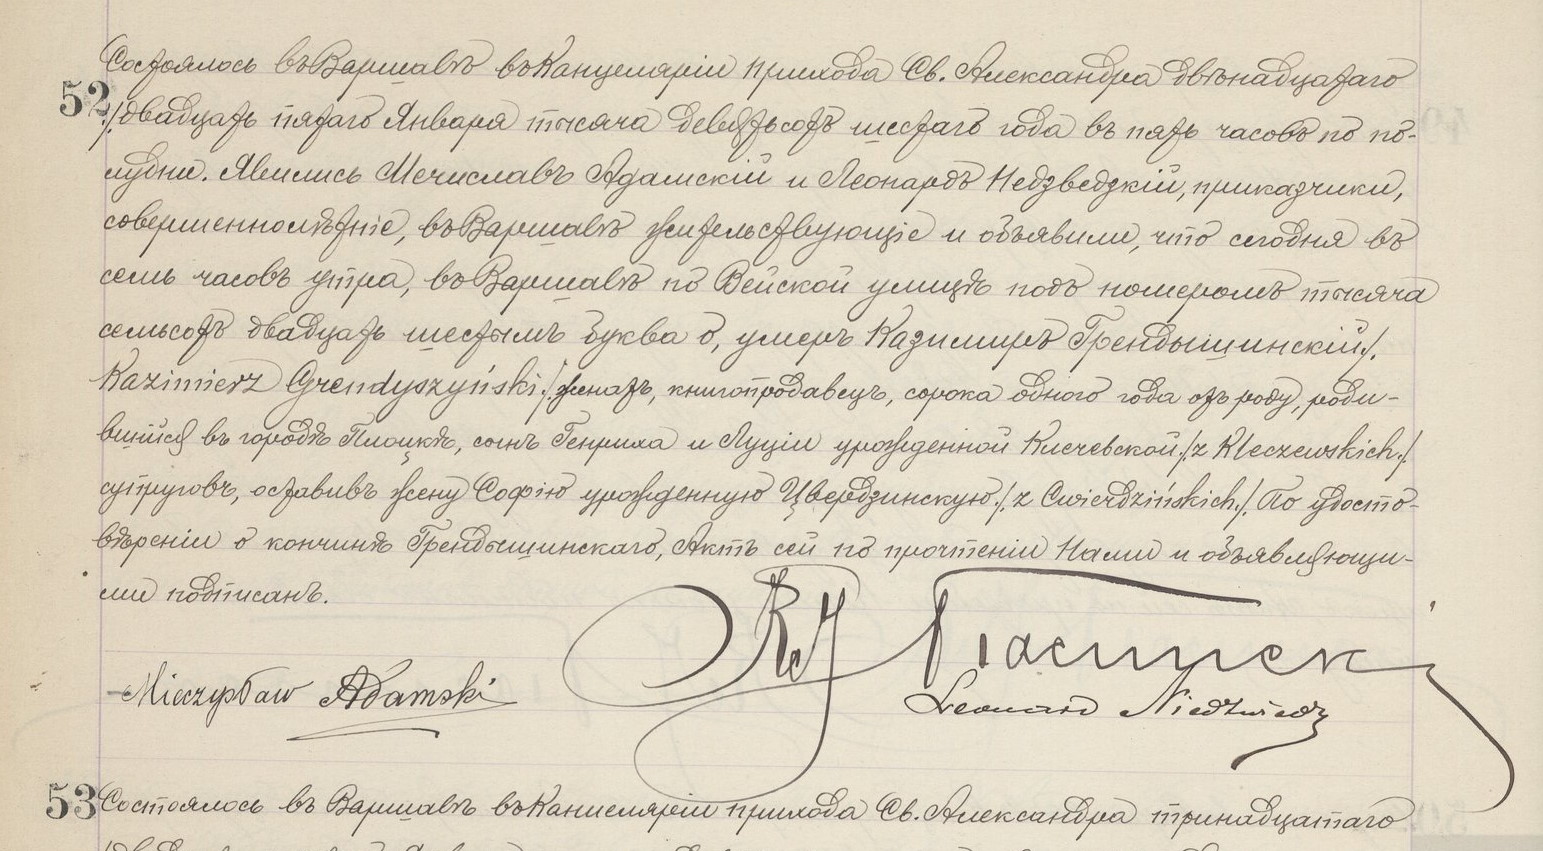 Состоялось въ Варшавѣ въ Канцеляріи прихода Св. Александра двѣнадцатаго
52
/двадцать пятаго Января тысяча девятьсотъ шестаго года въ пять часовъ по по-
лудни. Явились Мечиславъ Адамскій и Леонардъ Недзведзкій, приказчики,
совершеннолѣтніе, въ Варшавѣ жительствующіе и объявили, что сегодня въ
семь часовъ утра, въ Варшавѣ по Вейской улицѣ подъ номеромъ тысяча
семьсотъ двадцать шестымъ буква о, умеръ Казимиръ Грендышинскій /.
Kazimierz Grendyszyński./ женатъ, книгопродавецъ, сорока одного года отъ роду, роди-
вшийся въ городѣ Плоцкѣ, сынъ Генриха и Луціи урожденной Клечевской /z Kleczewskich./
супруговъ, оставивъ жену Софію урожденную Цвердзинскую./ z Cwierdzińskich./ По удосто-
вѣреніи о кончинѣ Грендышинскаго, Актъ сей по прочтеніи Нами и объявляющи-
ми подписанъ.
Mieczysław Adamski
Leonard Niedzwiedz
53 Состоялось въ Варшавѣ въ Канцеляріи прихода Св. Александра тринадцатаго